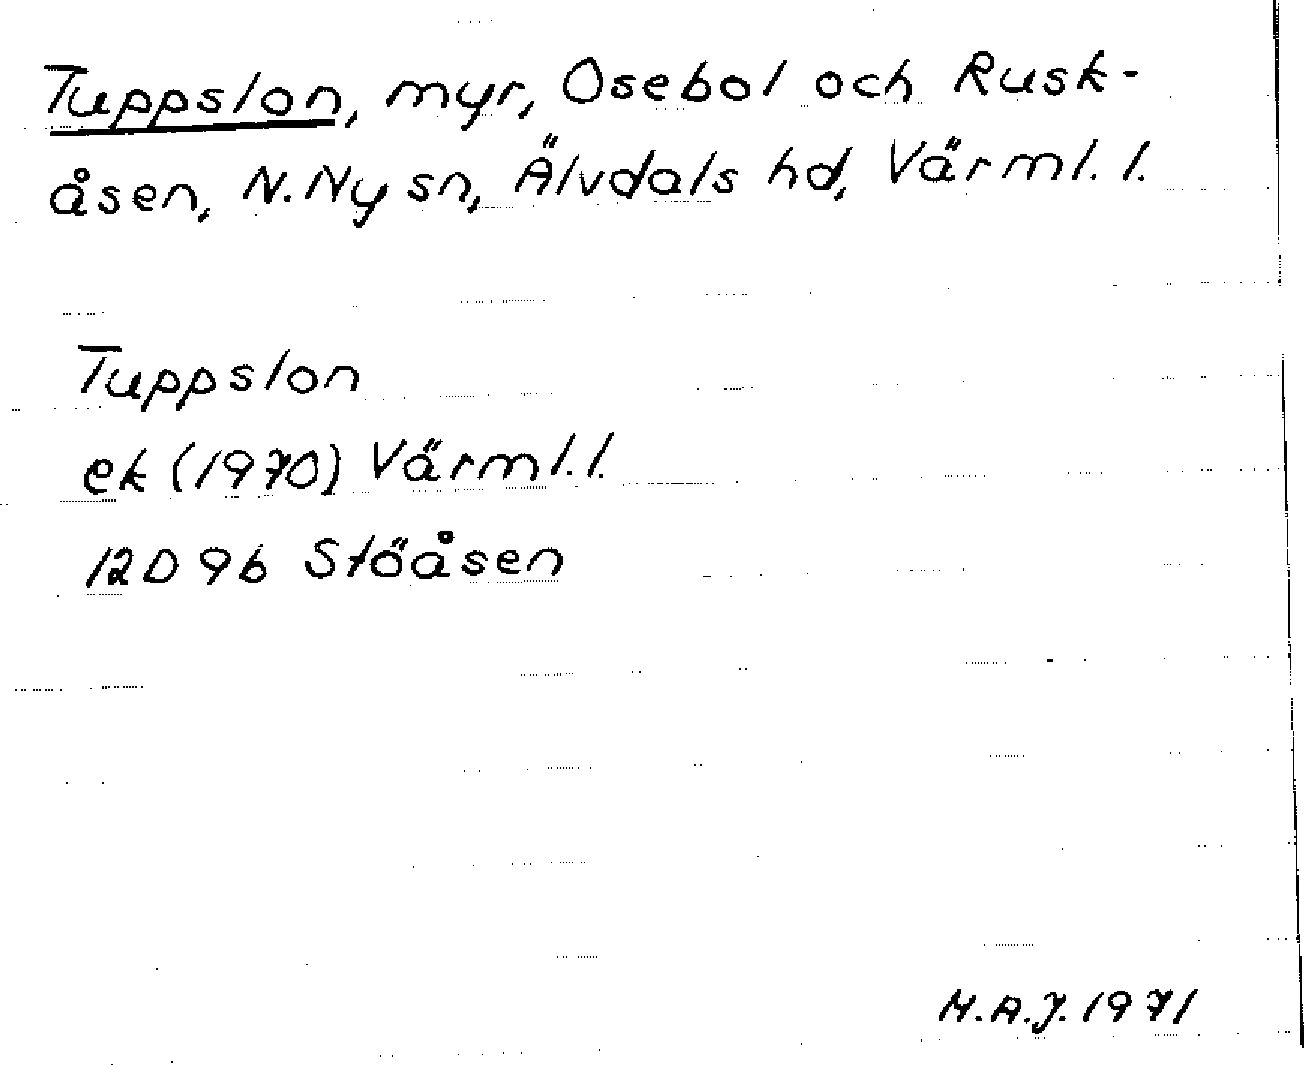 Tuppslon, myr, Osebol och Rusk-
åsen, N.Ny sn, Älvdals hd, Värml. l.
Tuppslon
ek (1970) Värml. l.
12D 9b Stöåsen
M.A.J. 1971